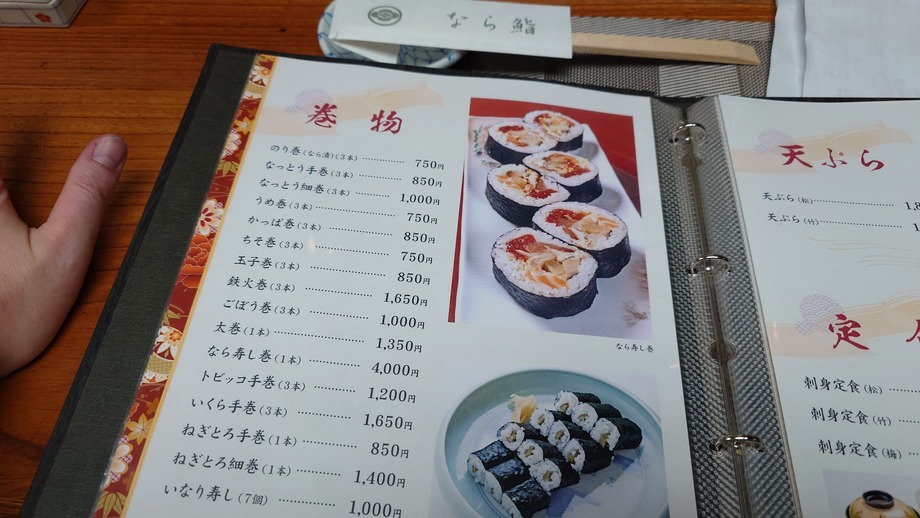 なら鮨
巻物
のり巻(なら漬)(3本) 750円
なっとう手巻(3本) 850円
なっとう細巻(3本) 1,000円
うめ巻(3本) 750円
かっぱ巻(3本) 850円
ちそ巻(3本) 750円
玉子巻(3本) 850円
鉄火巻(3本) 1,650円
ごぼう巻(3本) 1,000円
太巻(1本) 1,350円
なら寿し巻(1本) 4,000円
トビッコ手巻(3本) 1,200円
いくら手巻(3本) 1,650円
ねぎとろ手巻(1本) 850円
ねぎとろ細巻(1本) 1,400円
いなり寿し(7個) 1,000円
なら寿し巻
天ぷら
天ぷら(松)
天ぷら(竹)
定
刺身定食(松)
刺身定食(竹)
刺身定食(梅)